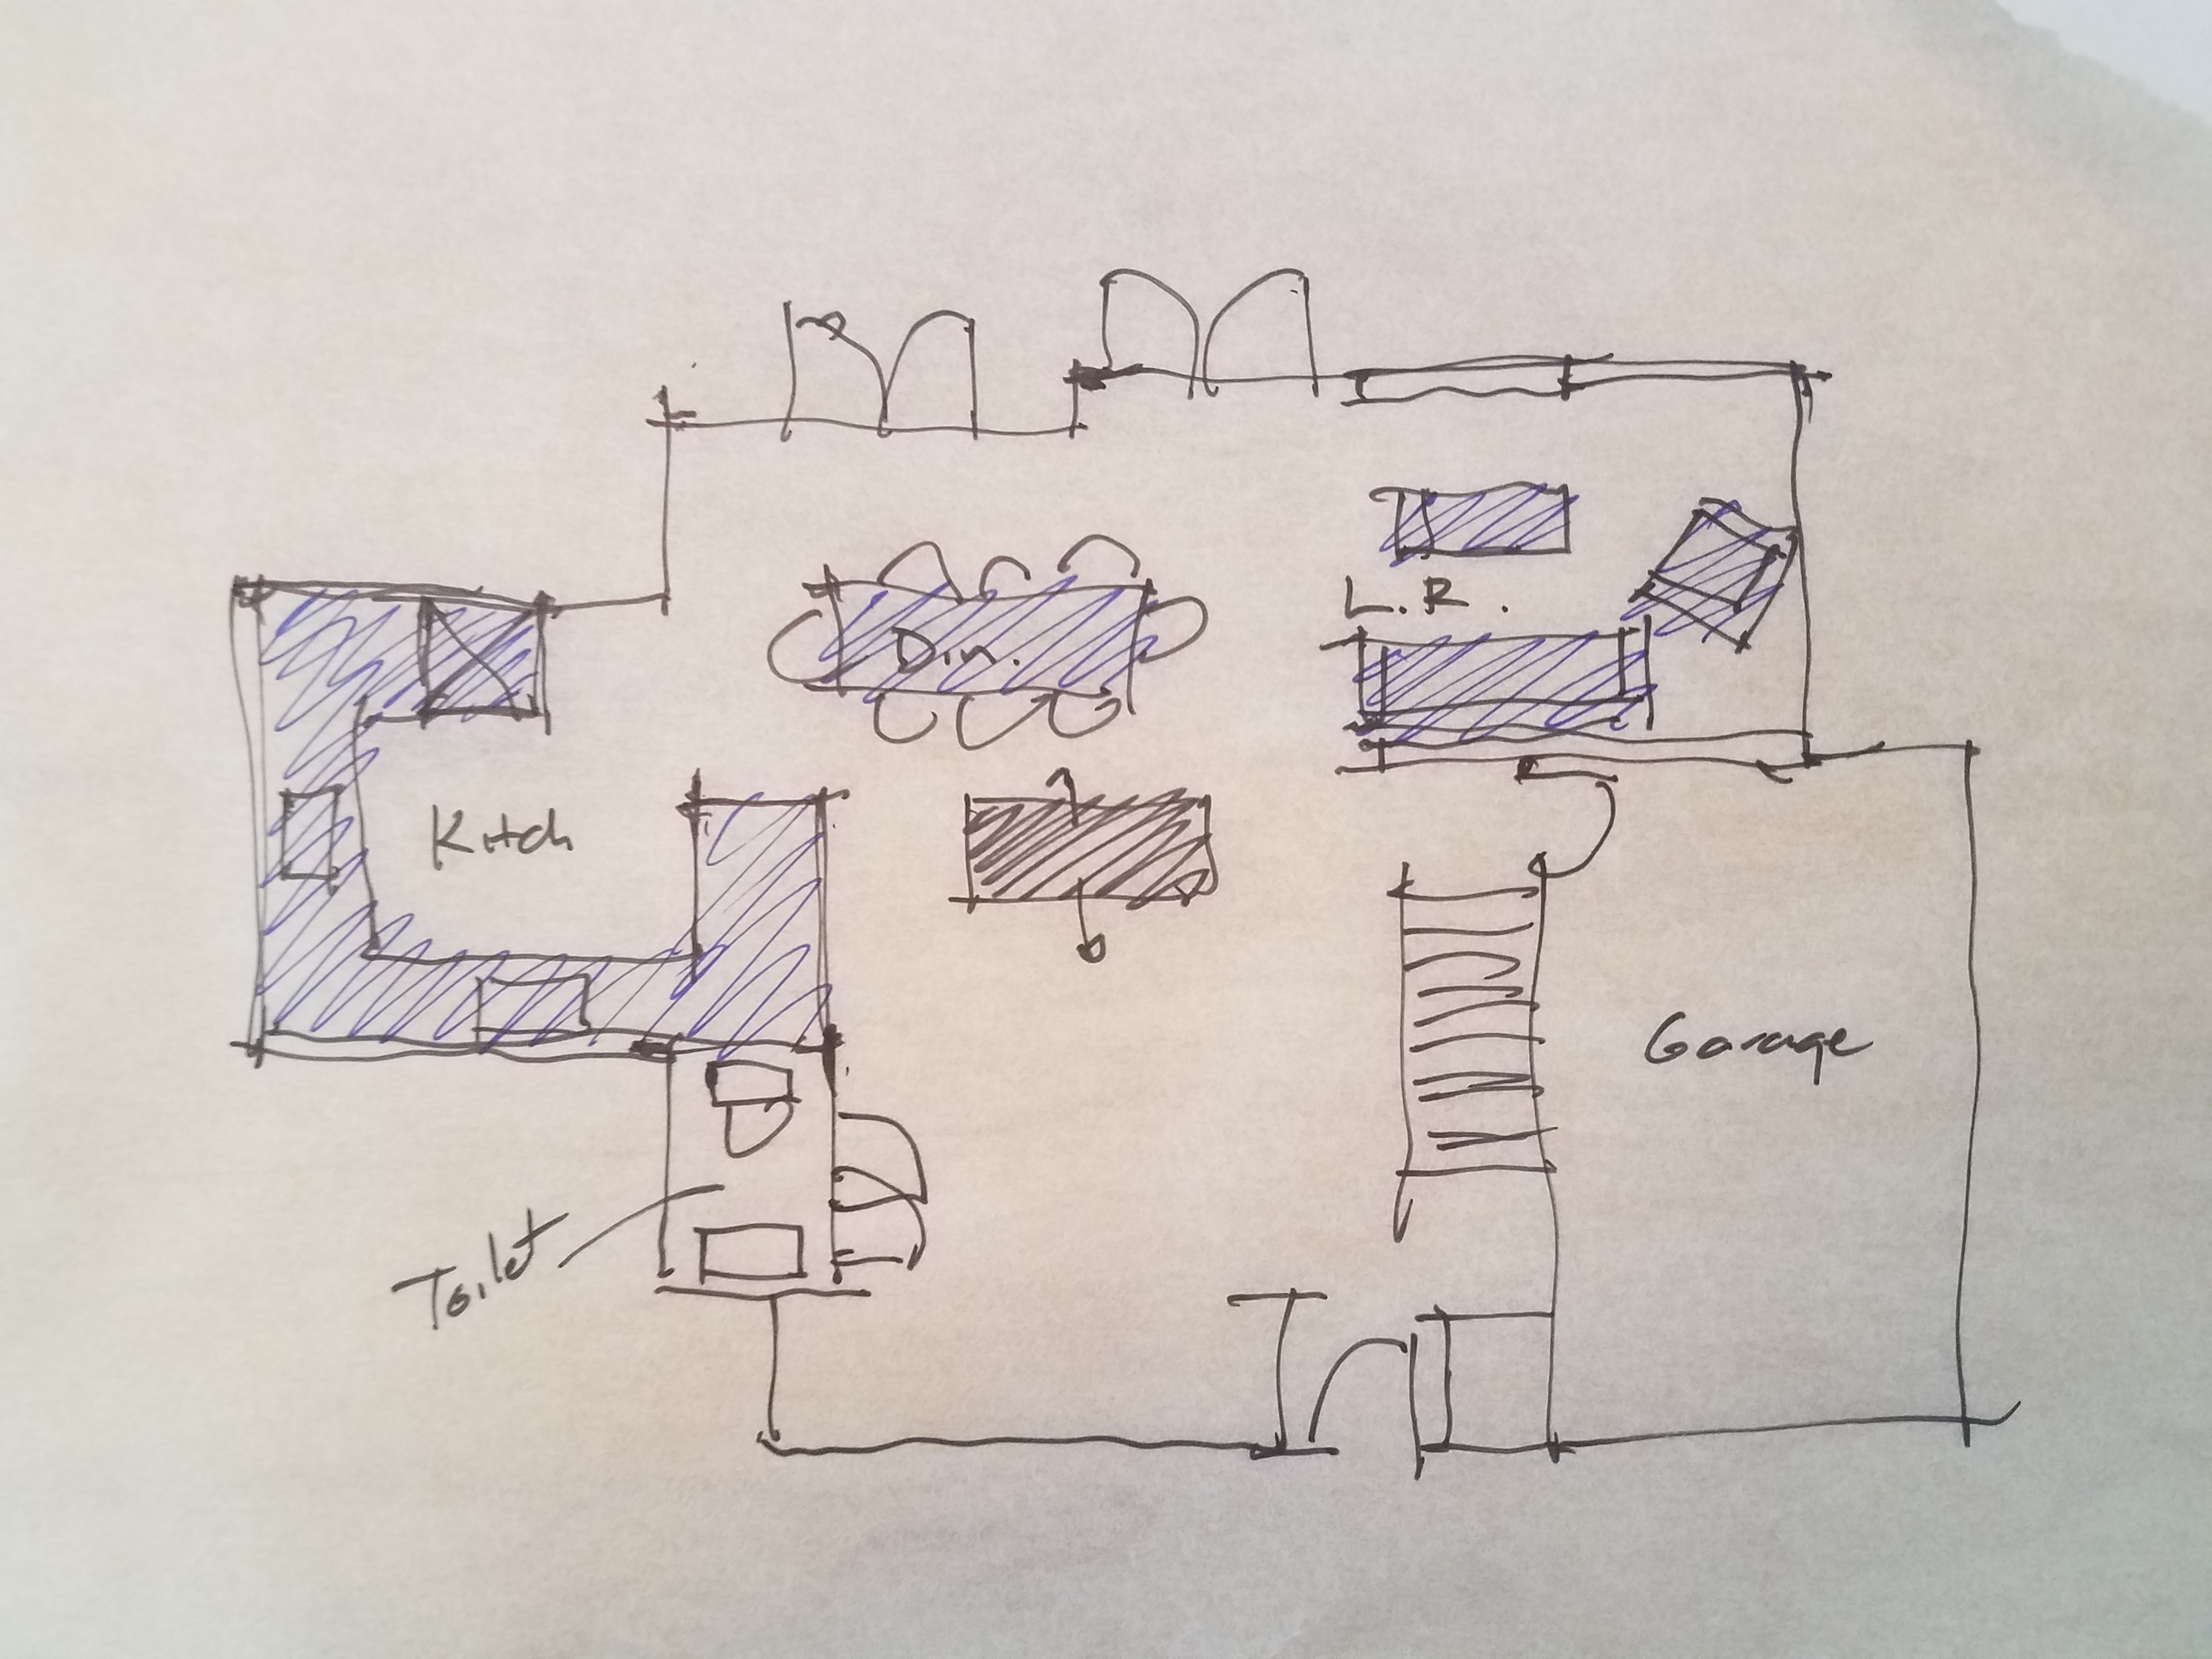 L.R.
Din.
Kitch
Garage
Toilet